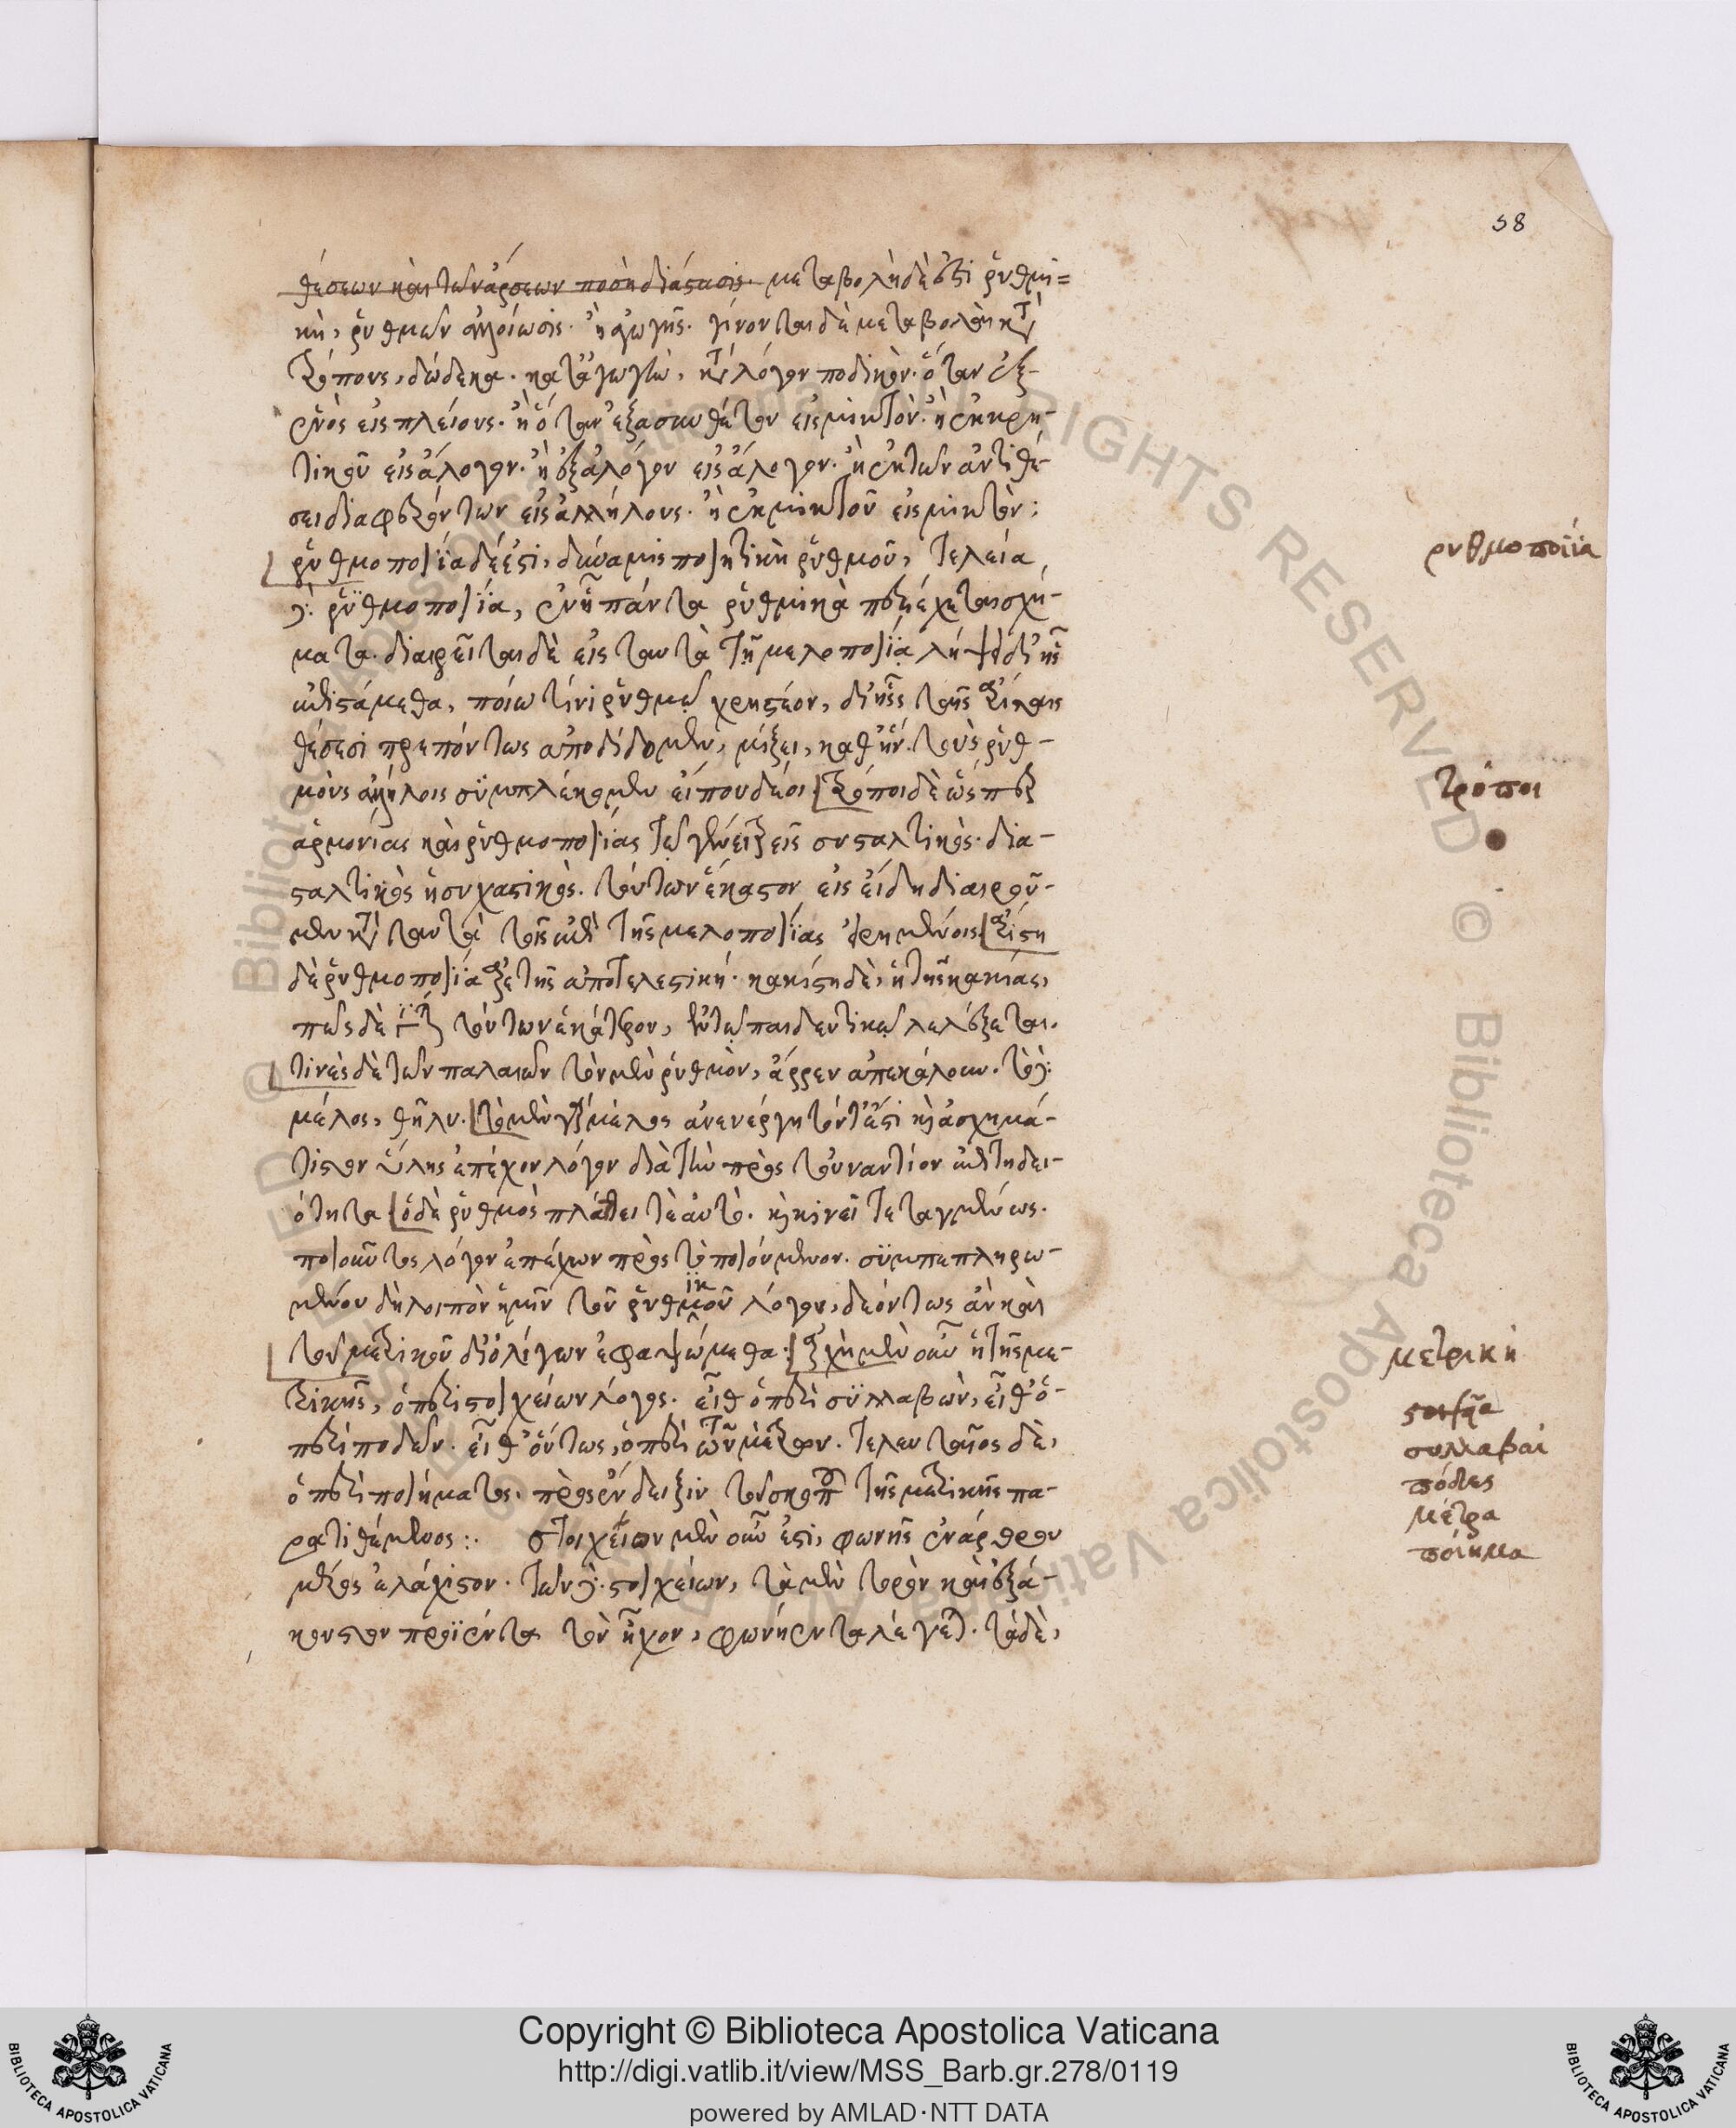 58
θέσεων καὶ τῶν ἄρσεων ποσὴ διάστασις. μεταβολὴ δὲ ἐστὶ ῥυθμι=
κὴ, ῥυθμῶν ἀλλοίωσις. ἢ ἀγωγῆς. γίνονται δὲ μεταβολαὶ κατὰ
τρόπους, δώδεκα. κατ' ἀγωγὴν, κατὰ λόγον ποδικὸν. ὅταν ἐξ
ἑνὸς εἰς πλείους. ἢ ὅταν ἐξ ἀσυνθέτου εἰς μικτὸν. ἢ ἐκ ῥη-
τικοῦ εἰς ἄλογον. ἢ ἐξ ἀλόγου εἰς ἄλογον. ἢ ἐκ τῶν ἀντιθέ-
σει διαφερόντων εἰς ἀλλήλους. ἢ ἐκ μικτοῦ εἰς μικτὸν:
ῥυθμοποιΐα δέ ἐστι, δύναμις ποιητικὴ ῥυθμοῦ, τελεία
δὲ ῥυθμοποιΐα, ἐν ᾗ πάντα ῥυθμικὰ περιέχεται σχή-
ματα. διαιρεῖται δὲ εἰς ταυτὰ τῇ μελοποιΐᾳ λῆψιν δι' ἧς
ἐπιστάμεθα, ποίῳ τινὶ ῥυθμῷ χρηστέον, δι' ἧς ταῖς ἄρσεσι
θέσεσι πρεπόντως ἀποδίδομεν, μίξει, καθ' ἣν τοὺς ῥυθ-
μοὺς ἀλλήλοις συμπλέκομεν εἴ που δέοι. τρόποι δὲ ὥσπερ
ἁρμονίας καὶ ῥυθμοποιίας τῷ γένει τρεῖς συσταλτικὸς. δια-
σταλτικὸς ἡσυχαστικὸς. τούτων ἕκαστον εἰς εἴδη διαιροῦ-
μεν κατὰ ταυτὰ τοῖς ἐπὶ τῆς μελοποιίας εἰρημένοις. ἀρίστη
δὲ ῥυθμοποιΐα ἀρετῆς ἀποτελεστική. κακίστη δὲ, ἡ τῆς κακίας,
πῶς δὲ τούτων ἑκάτερον, ἐν τῷ παιδευτικῷ λελέξεται.
τινὲς δὲ τῶν παλαιῶν τὸν μὲν ῥυθμὸν, ἄρρεν ἀπεκάλουν. τὸ δὲ
μέλος, θῆλυ. τὸ μὲν γὰρ μέλος ἀνενέργητόν τέ ἐστι καὶ ἀσχημά-
τιστον ὕλης ἐπέχον λόγον διὰ τὴν πρὸς τοὐναντίον ἐπιτηδει-
ότητα ὁ δὲ ῥυθμὸς πλάττει τε αὐτὸ. καὶ κινεῖ τεταγμένως.
ποιοῦντος λόγον ἐπέχων πρὸς τὸ ποιούμενον. συμπεπληρω-
μένου δὴ λοιπὸν ἡμῖν τοῦ ῥυθμικοῦ λόγου, δεόντως ἂν καὶ
τοῦ μετρικοῦ δι' ὀλίγων ἐφαψώμεθα: ἀρχὴ μὲν οὖν ἡ τῆς με-
τρικῆς, ὁ περὶ στοιχείων λόγος. εἶθ' ὁ περὶ συλλαβῶν, εἶθ' ὁ
περὶ ποδῶν. εἶθ' οὕτως, ὁ περὶ τῶν μέτρων. τελευταῖος δὲ,
ὁ περὶ ποιήματος. πρὸς ἔνδειξιν τοῦ σκοποῦ τῆς μετρικῆς πα-
ρατιθέμενος:. στοιχεῖον μὲν οὖν ἐστι, φωνῆς ἐνάρθρου
μέρος ἐλάχιστον. τῶν δὲ στοιχείων, τὰ μὲν τρανὸν καὶ ἐξά-
κουστον προϊέντα τὸν ἦχον, φωνήεντα λέγεται. τὰ δὲ,
ρυθμοποιΐα
τρόποι
μετρική
στοιχεῖα
συλλαβαί
πόδες
μέτρα
ποίημα
Copyright © Biblioteca Apostolica Vaticana
http://digi.vatlib.it/view/MSS_Barb.gr.278/0119
powered by AMLAD·NTT DATA
BIBLIOTECA APOSTOLICA VATICANA
BIBLIOTECA APOSTOLICA VATICANA